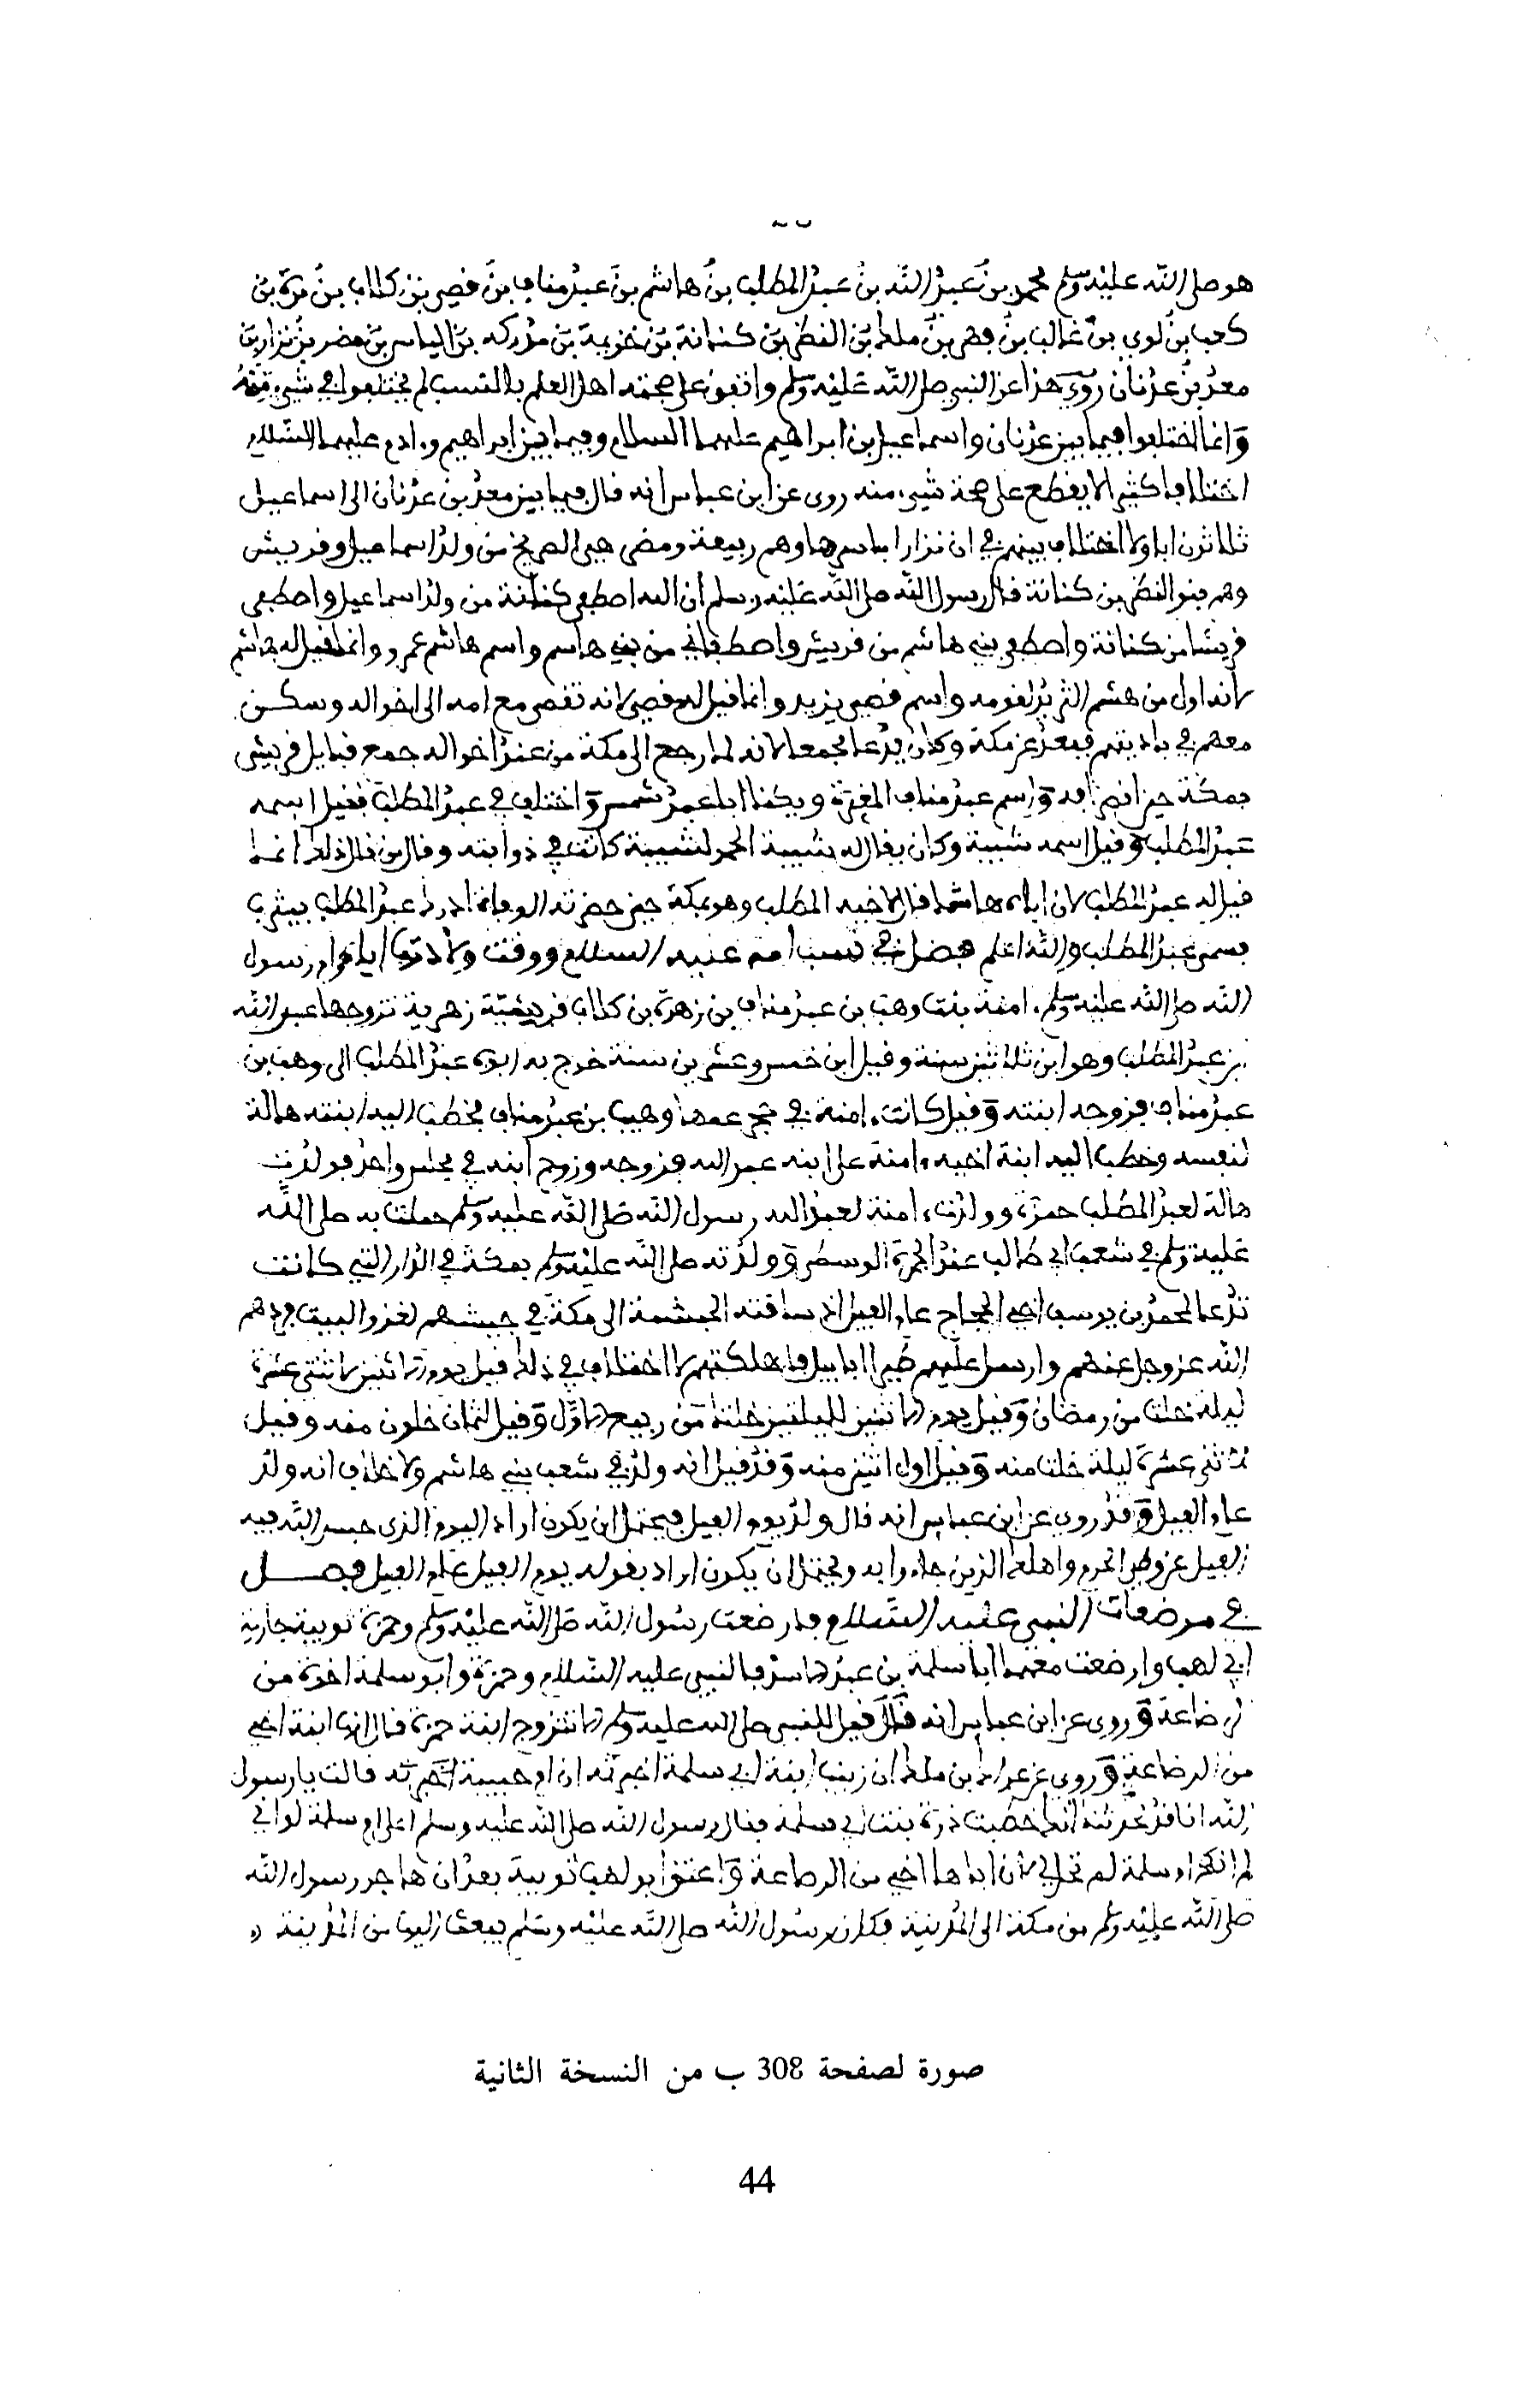 هو صلى الله عليه وسلم محمد بن عبد الله بن عبد المطلب بن هاشم بن عبد مناف بن قصي بن كلاب بن مرة بن
كعب بن لوي بن غالب بن فهر بن ملك بن النضر بن كنانة بن خزيمة بن مدركه بن الياس بن مضر بن نزار بن
معد بن عدنان روي هذا عن النبي صلى الله عليه وسلم واتفق على صحته اهل العلم بالنسب لم يختلفوا في شيء منه
وانما اختلفوا فيما بين عدنان واسماعيل بن ابراهيم عليهما السلام وفيما بين ابراهيم وءادم عليهما السلام
اختلافا كثيرا لا يقطع على صحة شيء منه روى عن ابن عباس انه قال فيما بين معد بن عدنان الى اسماعيل
ثلاثون ابا ولا اختلاف بينهم في ان نزارا باسرها وهم ربيعة ومضر هي الصريح من ولد اسماعيل وقريش
وهم بنو النضر بن كنانة قال رسول الله صلى الله عليه وسلم ان الله اصطفى كنانة من ولد اسماعيل واصطفى
قريشا من كنانة واصطفى بني هاشم من قريش واصطفاني من بني هاشم واسم هاشم عمرو وانما قيل له هاشم
لانه اول من هشم الثريد لقومه واسم قصي يزيد وانما قيل له قصي لانه تقصى مع امه الى اخواله وسكن
معهم في باديتهم فبعد عن مكة وكان يدعا مجمعا لانه لما رجع الى مكة من عند اخواله جمع قبايل قريش
بمكة حين انصرافه واسم عبد مناف المغيرة ويكنا ابا عبد شمس واختلف في عبد المطلب فقيل اسمه
عبد المطلب وقيل اسمه شيبة وكان يقال له شيبة الحمد لشيبة كانت في ذوابته وقال من قال ذلك انما
قيل له عبد المطلب لان اباه هاشما قال لاخيه المطلب وهو بمكة حين حضرته الوفاة ادرك عبد المطلب بيثرب
فسمي عبد المطلب والله اعلم فصل في نسب امه عليه السلام ووقت ولادتها اياه وام رسول
الله صلى الله عليه وسلم ءامنة بنت وهب بن عبد مناف بن زهرة بن كلاب قرشية زهرية تزوجها عبد الله
بن عبد المطلب وهو ابن ثلاثين سنة وقيل ابن خمس وعشرين سنة خرج به ابوه عبد المطلب الى وهب بن
عبد مناف فزوجه ابنته وقيل كانت ءامنة في حجر عمها وهيب بن عبد مناف فخطب اليه ابنته هالة
لنفسه وخطب اليه ابنة اخيه ءامنة على ابنه عبد الله فزوجه وزوج ابنه في مجلس واحد فولدت
هالة لعبد المطلب حمزة وولدت ءامنة لعبد الله رسول الله صلى الله عليه وسلم حملت به صلى الله
عليه وسلم في شعب ابي طالب عند الجمرة الوسطى وولدته صلى الله عليه وسلم بمكة في الدار التي كانت
تدعا لمحمد بن يوسف اخي الحجاج عام الفيل اذ ساقته الحبشة الى مكة في جيشهم لغزو البيت فردهم
الله عز وجل عنهم وارسل عليهم طيرا ابابيل فاهلكتهم لا اختلاف في ذلك قيل يوم الاثنين لاثنتي عشرة
ليلة خلت من رمضان وقيل يوم الاثنين لليلتين خلتا من ربيع الاول وقيل لثمان خلون منه وقيل
لاثنتي عشرة ليلة خلت منه وقيل اول اثنين منه وقد قيل انه ولد في شعب بني هاشم ولا خلاف انه ولد
عام الفيل وقد روي عن ابن عباس انه قال ولد يوم الفيل فيحتمل ان يكون اراد اليوم الذي حبس الله فيه
الفيل عن وطي الحرم واهلك الذين جاءوا به ويحتمل ان يكون اراد بقوله يوم الفيل عام الفيل فصل
في مرضعات النبي عليه السلام فارضعت رسول الله صلى الله عليه وسلم وحمزة ثويبة جارية
ابي لهب وارضعت معهما ابا سلمة بن عبد الاسد فالنبي عليه السلام وحمزة وابو سلمة اخوة من
الرضاعة وروي عن ابن عباس انه قال قيل للنبي صلى الله عليه وسلم الا تتزوج ابنة حمزة قال انها ابنة اخي
من الرضاعة وروي عن عراك بن ملك ان زينب ابنة ابي سلمة اخبرته ان ام حبيبة اخبرته قالت يا رسول
الله انا قد تحدثنا انك خطبت درة بنت ابي سلمة فقال رسول الله صلى الله عليه وسلم اعلى ام سلمة لو اني
لم انكح ام سلمة لم تحل لي لان اباها اخي من الرضاعة واعتق ابو لهب ثويبة بعد ان هاجر رسول الله
صلى الله عليه وسلم من مكة الى المدينة فكان رسول الله صلى الله عليه وسلم يبعث اليها من المدينة
صورة لصفحة 308 ب من النسخة الثانية
44